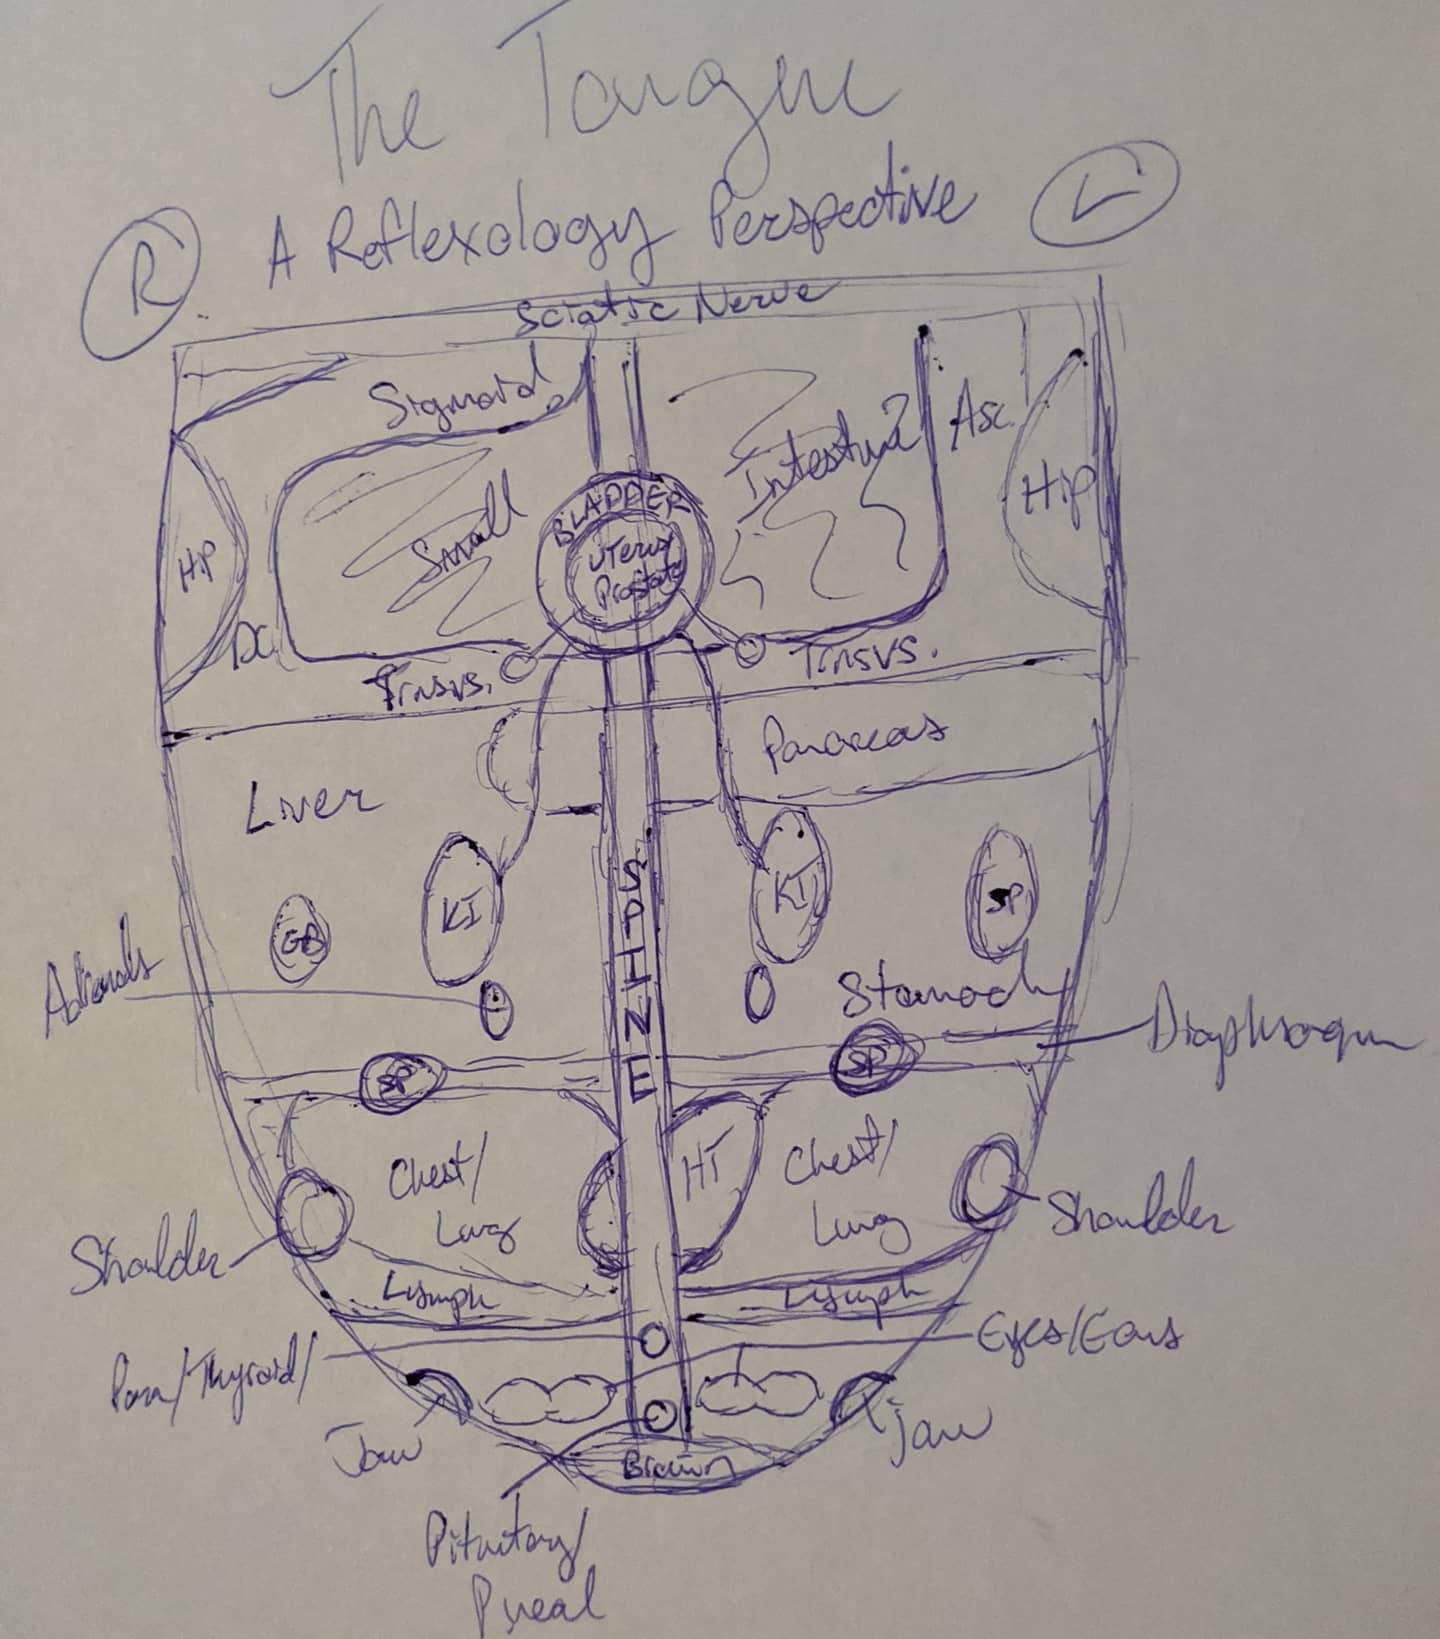 The Tongue
A Reflexology Perspective
R
L
Sciatic Nerve
Sigmoid
Asc.
Intestine
Hip
BLADDER
Uterus
Prostate
Small
Hip
DC
Trnsvs.
Trnsvs.
Pancreas
Liver
KI
KI
SP
GB
SPINE
Adrenals
Stomach
Diaphragm
SP
SP
Chest/
Lung
HT
Chest/
Lung
Shoulder
Shoulder
Lymph
Lymph
Para/Thyroid/
Eyes/Ears
Jaw
Jaw
Brain
Pituitary/
Pineal